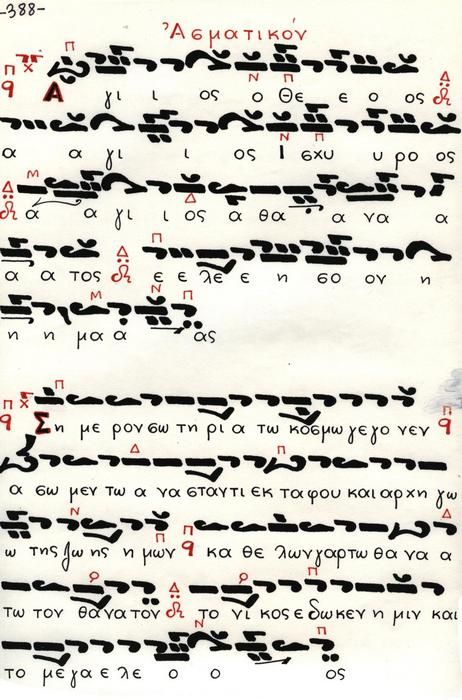 -388-
Ἀσματικόν
Α γι ι ος ο Θε ε ο ος
α α γι ι ος Ι σχυ υ ρο ος
α α γι ι ος α θα α να α
α α τος ε ε λε ε η σο ον η
η η μα α ας
Ση με ρον σω τη ρι α τω κοσμω γε γο νεν
α σω μεν τω α να σταντι εκ ταφου και αρχη γω
ω της ζω ης η μων κα θε λων γαρ τω θα να α
τω τον θανατον το νι κος ε δωκεν η μιν και
το με γα ε λε ο ο ος